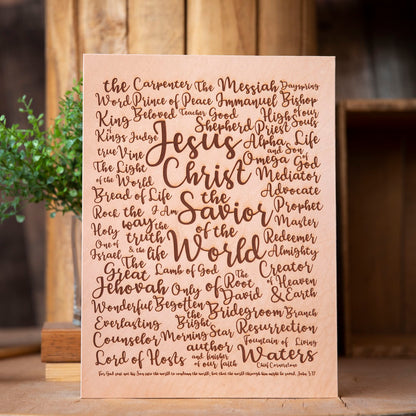 the Carpenter The Messiah Dayspring
Word Prince of Peace Immanuel Bishop
King Beloved Teacher Good High of Your
of Kings Judge Shepherd Priest Souls
true Vine Jesus Alpha and Life
The Light Christ Omega Son of God
of the World the Mediator
Bread of Life Savior Advocate
Rock the I Am of the Prophet
Holy way the World Master
One of truth Redeemer
Israel & the life Almighty
The Lamb of God Creator
Great The Root of Heaven
Jehovah Only of David & Earth
Wonderful Begotten the Bridegroom Branch
Everlasting Bright Resurrection
Counselor Morning Star Fountain of Living
Lord of Hosts author Waters
and finisher of our faith Chief Cornerstone
For God sent not his Son into the world to condemn the world; but that the world through him might be saved. John 3:17